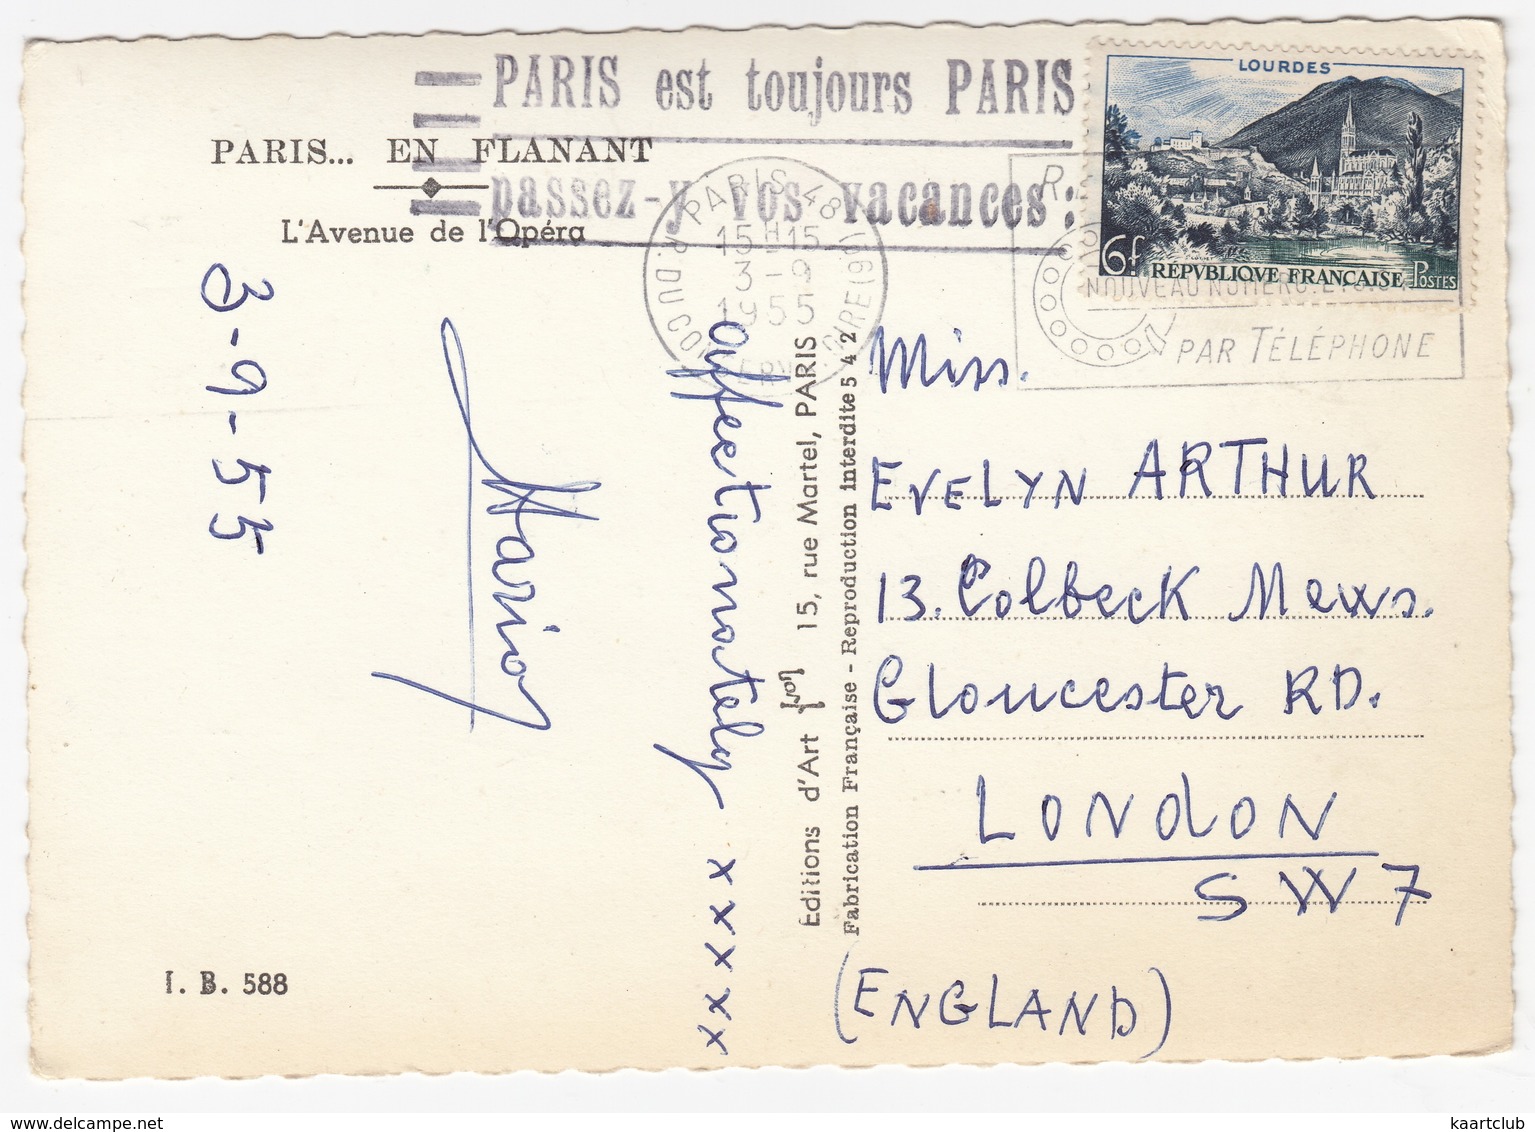 PARIS est toujours PARIS
passez-y vos vacances:
LOURDES
6f RÉPVBLIQVE FRANÇAISE POSTES
PARIS... EN FLANANT
L'Avenue de l'Opéra
PARIS 48
15H15
3-9
1955
R. DU CONSERVATOIRE (9e)
NOUVEAU NUMERO
PAR TÉLÉPHONE
3-9-55
Mario
affectionately
x x x x x
Editions d'Art Yvon 15, rue Martel, PARIS
Fabrication Française - Reproduction interdite 542
Miss.
EVELYN ARTHUR
13. Colbeck Mews.
Gloucester RD.
LONDON
SW7
(ENGLAND)
I. B. 588
www.delcampe.net
kaartclub